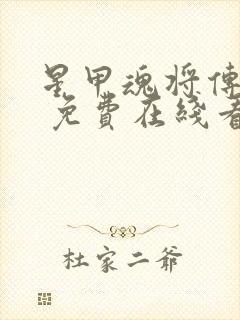 星甲魂将傳
免費在綫看
杜家二爷